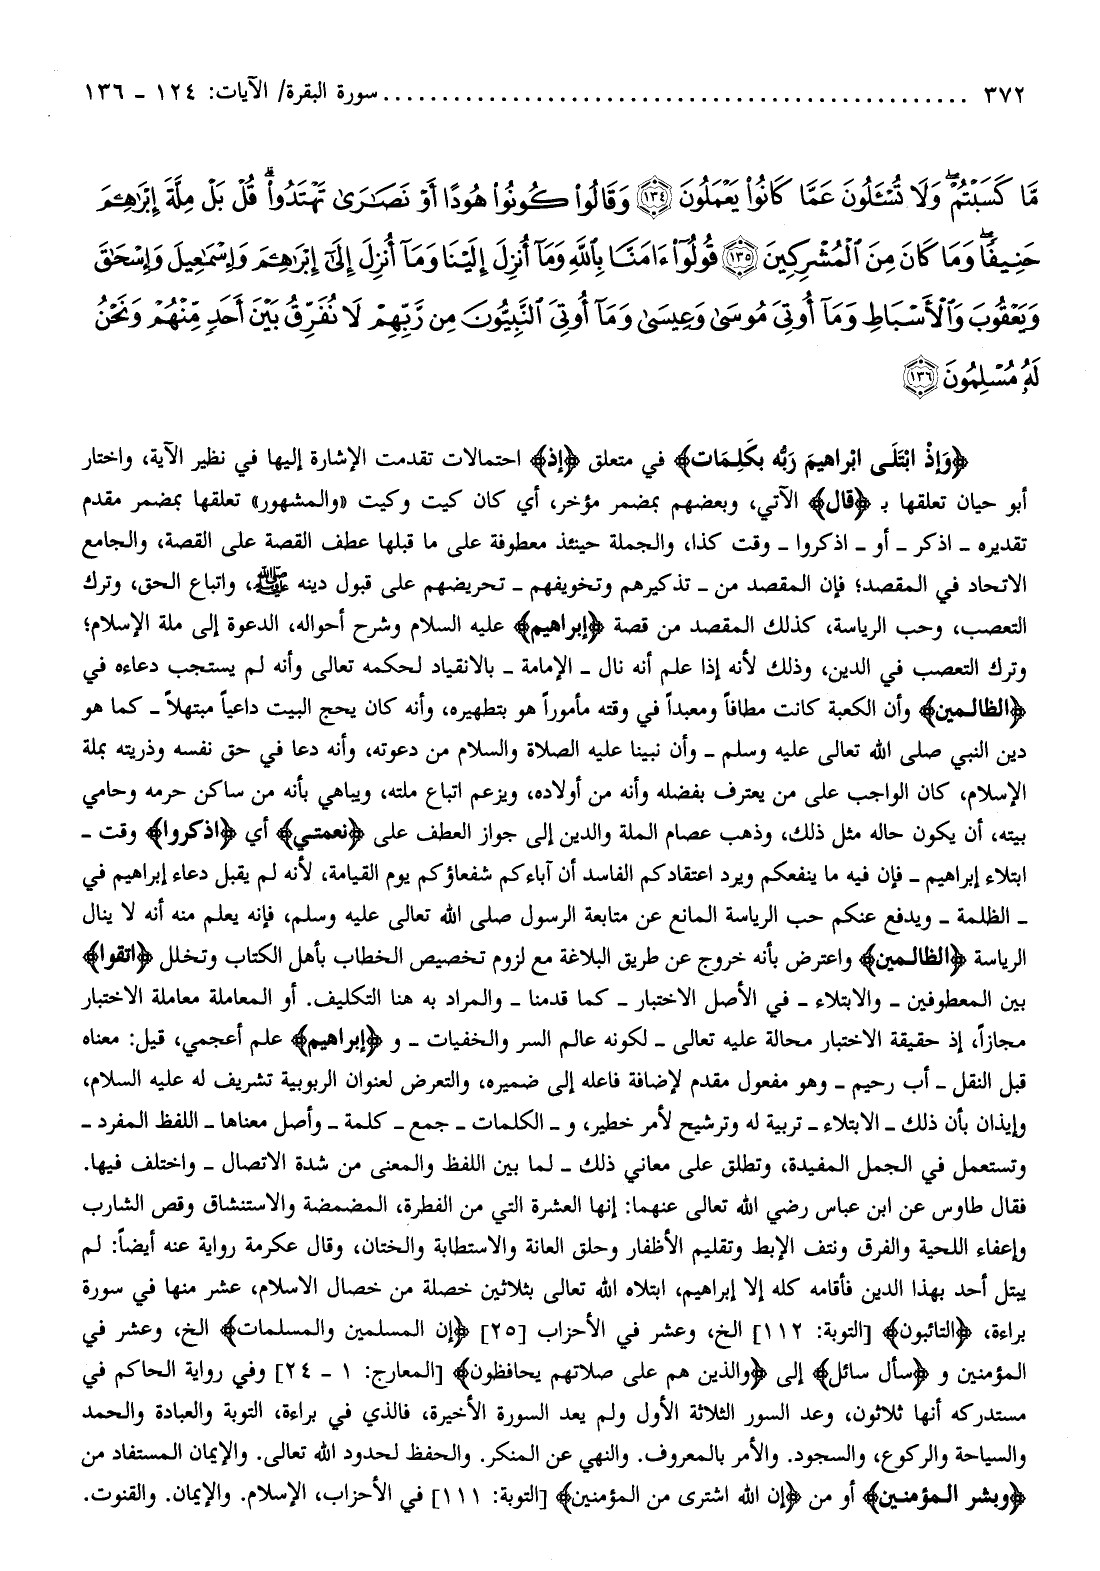 ٣٧٢ .................................................. سورة البقرة/ الآيات: ١٢٤ ـ ١٣٦
مَّا كَسَبْتُمْ ۖ وَلَا تُسْـَٔلُونَ عَمَّا كَانُوا۟ يَعْمَلُونَ ﴿١٣٤﴾ وَقَالُوا۟ كُونُوا۟ هُودًا أَوْ نَصَـٰرَىٰ تَهْتَدُوا۟ ۗ قُلْ بَلْ مِلَّةَ إِبْرَٰهِـۧمَ
حَنِيفًا ۖ وَمَا كَانَ مِنَ ٱلْمُشْرِكِينَ ﴿١٣٥﴾ قُولُوٓا۟ ءَامَنَّا بِٱللَّهِ وَمَآ أُنزِلَ إِلَيْنَا وَمَآ أُنزِلَ إِلَىٰٓ إِبْرَٰهِـۧمَ وَإِسْمَـٰعِيلَ وَإِسْحَـٰقَ
وَيَعْقُوبَ وَٱلْأَسْبَاطِ وَمَآ أُوتِىَ مُوسَىٰ وَعِيسَىٰ وَمَآ أُوتِىَ ٱلنَّبِيُّونَ مِن رَّبِّهِمْ لَا نُفَرِّقُ بَيْنَ أَحَدٍ مِّنْهُمْ وَنَحْنُ
لَهُۥ مُسْلِمُونَ ﴿١٣٦﴾
﴿وَإِذْ ابْتَلَى ابْراهيمَ رَبُّه بكَلِمَات﴾ في متعلق ﴿إذ﴾ احتمالات تقدمت الإشارة إليها في نظير الآية، واختار
أبو حيان تعلقها بـ ﴿قال﴾ الآتي، وبعضهم بمضمر مؤخر، أي كان كيت وكيت «والمشهور» تعلقها بمضمر مقدم
تقديره ـ اذكر ـ أو ـ اذكروا ـ وقت كذا، والجملة حينئذ معطوفة على ما قبلها عطف القصة على القصة، والجامع
الاتحاد في المقصد؛ فإن المقصد من ـ تذكيرهم وتخويفهم ـ تحريضهم على قبول دينه ﷺ، واتباع الحق، وترك
التعصب، وحب الرياسة، كذلك المقصد من قصة ﴿إبراهيم﴾ عليه السلام وشرح أحواله، الدعوة إلى ملة الإسلام؛
وترك التعصب في الدين، وذلك لأنه إذا علم أنه نال ـ الإمامة ـ بالانقياد لحكمه تعالى وأنه لم يستجب دعاءه في
﴿الظالمين﴾ وأن الكعبة كانت مطافاً ومعبداً في وقته مأموراً هو بتطهيره، وأنه كان يحج البيت داعياً مبتهلاً ـ كما هو
دين النبي صلى الله تعالى عليه وسلم ـ وأن نبينا عليه الصلاة والسلام من دعوته، وأنه دعا في حق نفسه وذريته بملة
الإسلام، كان الواجب على من يعترف بفضله وأنه من أولاده، ويزعم اتباع ملته، ويباهي بأنه من ساكن حرمه وحامي
بيته، أن يكون حاله مثل ذلك، وذهب عصام الملة والدين إلى جواز العطف على ﴿نعمتي﴾ أي ﴿اذكروا﴾ وقت ـ
ابتلاء إبراهيم ـ فإن فيه ما ينفعكم ويرد اعتقادكم الفاسد أن آباءكم شفعاؤكم يوم القيامة، لأنه لم يقبل دعاء إبراهيم في
ـ الظلمة ـ ويدفع عنكم حب الرياسة المانع عن متابعة الرسول صلى الله تعالى عليه وسلم، فإنه يعلم منه أنه لا ينال
الرياسة ﴿الظالمين﴾ واعترض بأنه خروج عن طريق البلاغة مع لزوم تخصيص الخطاب بأهل الكتاب وتخلل ﴿اتقوا﴾
بين المعطوفين ـ والابتلاء ـ في الأصل الاختبار ـ كما قدمنا ـ والمراد به هنا التكليف. أو المعاملة معاملة الاختبار
مجازاً، إذ حقيقة الاختبار محالة عليه تعالى ـ لكونه عالم السر والخفيات ـ و ﴿إبراهيم﴾ علم أعجمي، قيل: معناه
قبل النقل ـ أب رحيم ـ وهو مفعول مقدم لإضافة فاعله إلى ضميره، والتعرض لعنوان الربوبية تشريف له عليه السلام،
وإيذان بأن ذلك ـ الابتلاء ـ تربية له وترشيح لأمر خطير، و ـ الكلمات ـ جمع ـ كلمة ـ وأصل معناها ـ اللفظ المفرد ـ
وتستعمل في الجمل المفيدة، وتطلق على معاني ذلك ـ لما بين اللفظ والمعنى من شدة الاتصال ـ واختلف فيها.
فقال طاوس عن ابن عباس رضي الله تعالى عنهما: إنها العشرة التي من الفطرة، المضمضة والاستنشاق وقص الشارب
وإعفاء اللحية والفرق ونتف الإبط وتقليم الأظفار وحلق العانة والاستطابة والختان، وقال عكرمة رواية عنه أيضاً: لم
يبتل أحد بهذا الدين فأقامه كله إلا إبراهيم، ابتلاه الله تعالى بثلاثين خصلة من خصال الاسلام، عشر منها في سورة
براءة، ﴿التائبون﴾ [التوبة: ١١٢] الخ، وعشر في الأحزاب [٢٥] ﴿إن المسلمين والمسلمات﴾ الخ، وعشر في
المؤمنين و ﴿سأل سائل﴾ إلى ﴿والذين هم على صلاتهم يحافظون﴾ [المعارج: ١ ـ ٢٤] وفي رواية الحاكم في
مستدركه أنها ثلاثون، وعد السور الثلاثة الأول ولم يعد السورة الأخيرة، فالذي في براءة، التوبة والعبادة والحمد
والسياحة والركوع، والسجود. والأمر بالمعروف. والنهي عن المنكر. والحفظ لحدود الله تعالى. والإيمان المستفاد من
﴿وبشر المؤمنين﴾ أو من ﴿إن الله اشترى من المؤمنين﴾ [التوبة: ١١١] في الأحزاب، الإسلام. والإيمان. والقنوت.